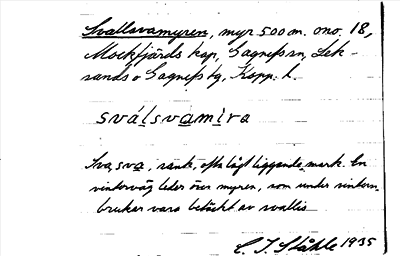 Svallsvamyren, myr 500 m. ono. 18,
Mockfjärds kap, Gagnefs sn, Lek-
sands o Gagnefs tg, Kopp. l.
svál̲sva̲mi̲ra
Sva, sva̲, sank, ofta lågt liggande mark. En
vinterväg leder över myren, som under vintern
brukar vara betäckt av svallis
C. I. Ståhle 1935